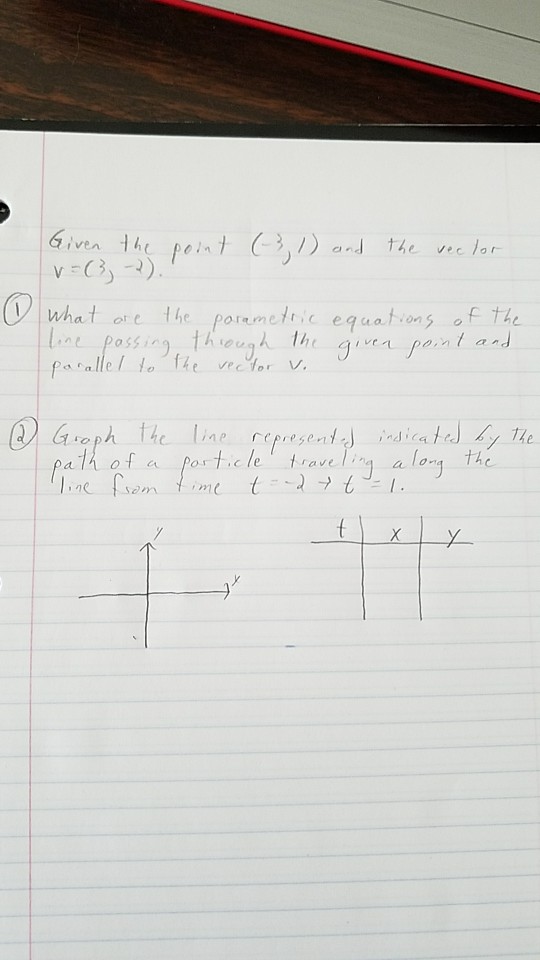 Given the point (-3, 1) and the vector
v = (3, -2).
① What are the parametric equations of the
line passing through the given point and
parallel to the vector v.
② Graph the line represented indicated by the
path of a particle traveling along the
line from time t = -2 → t = 1.
y
t x y